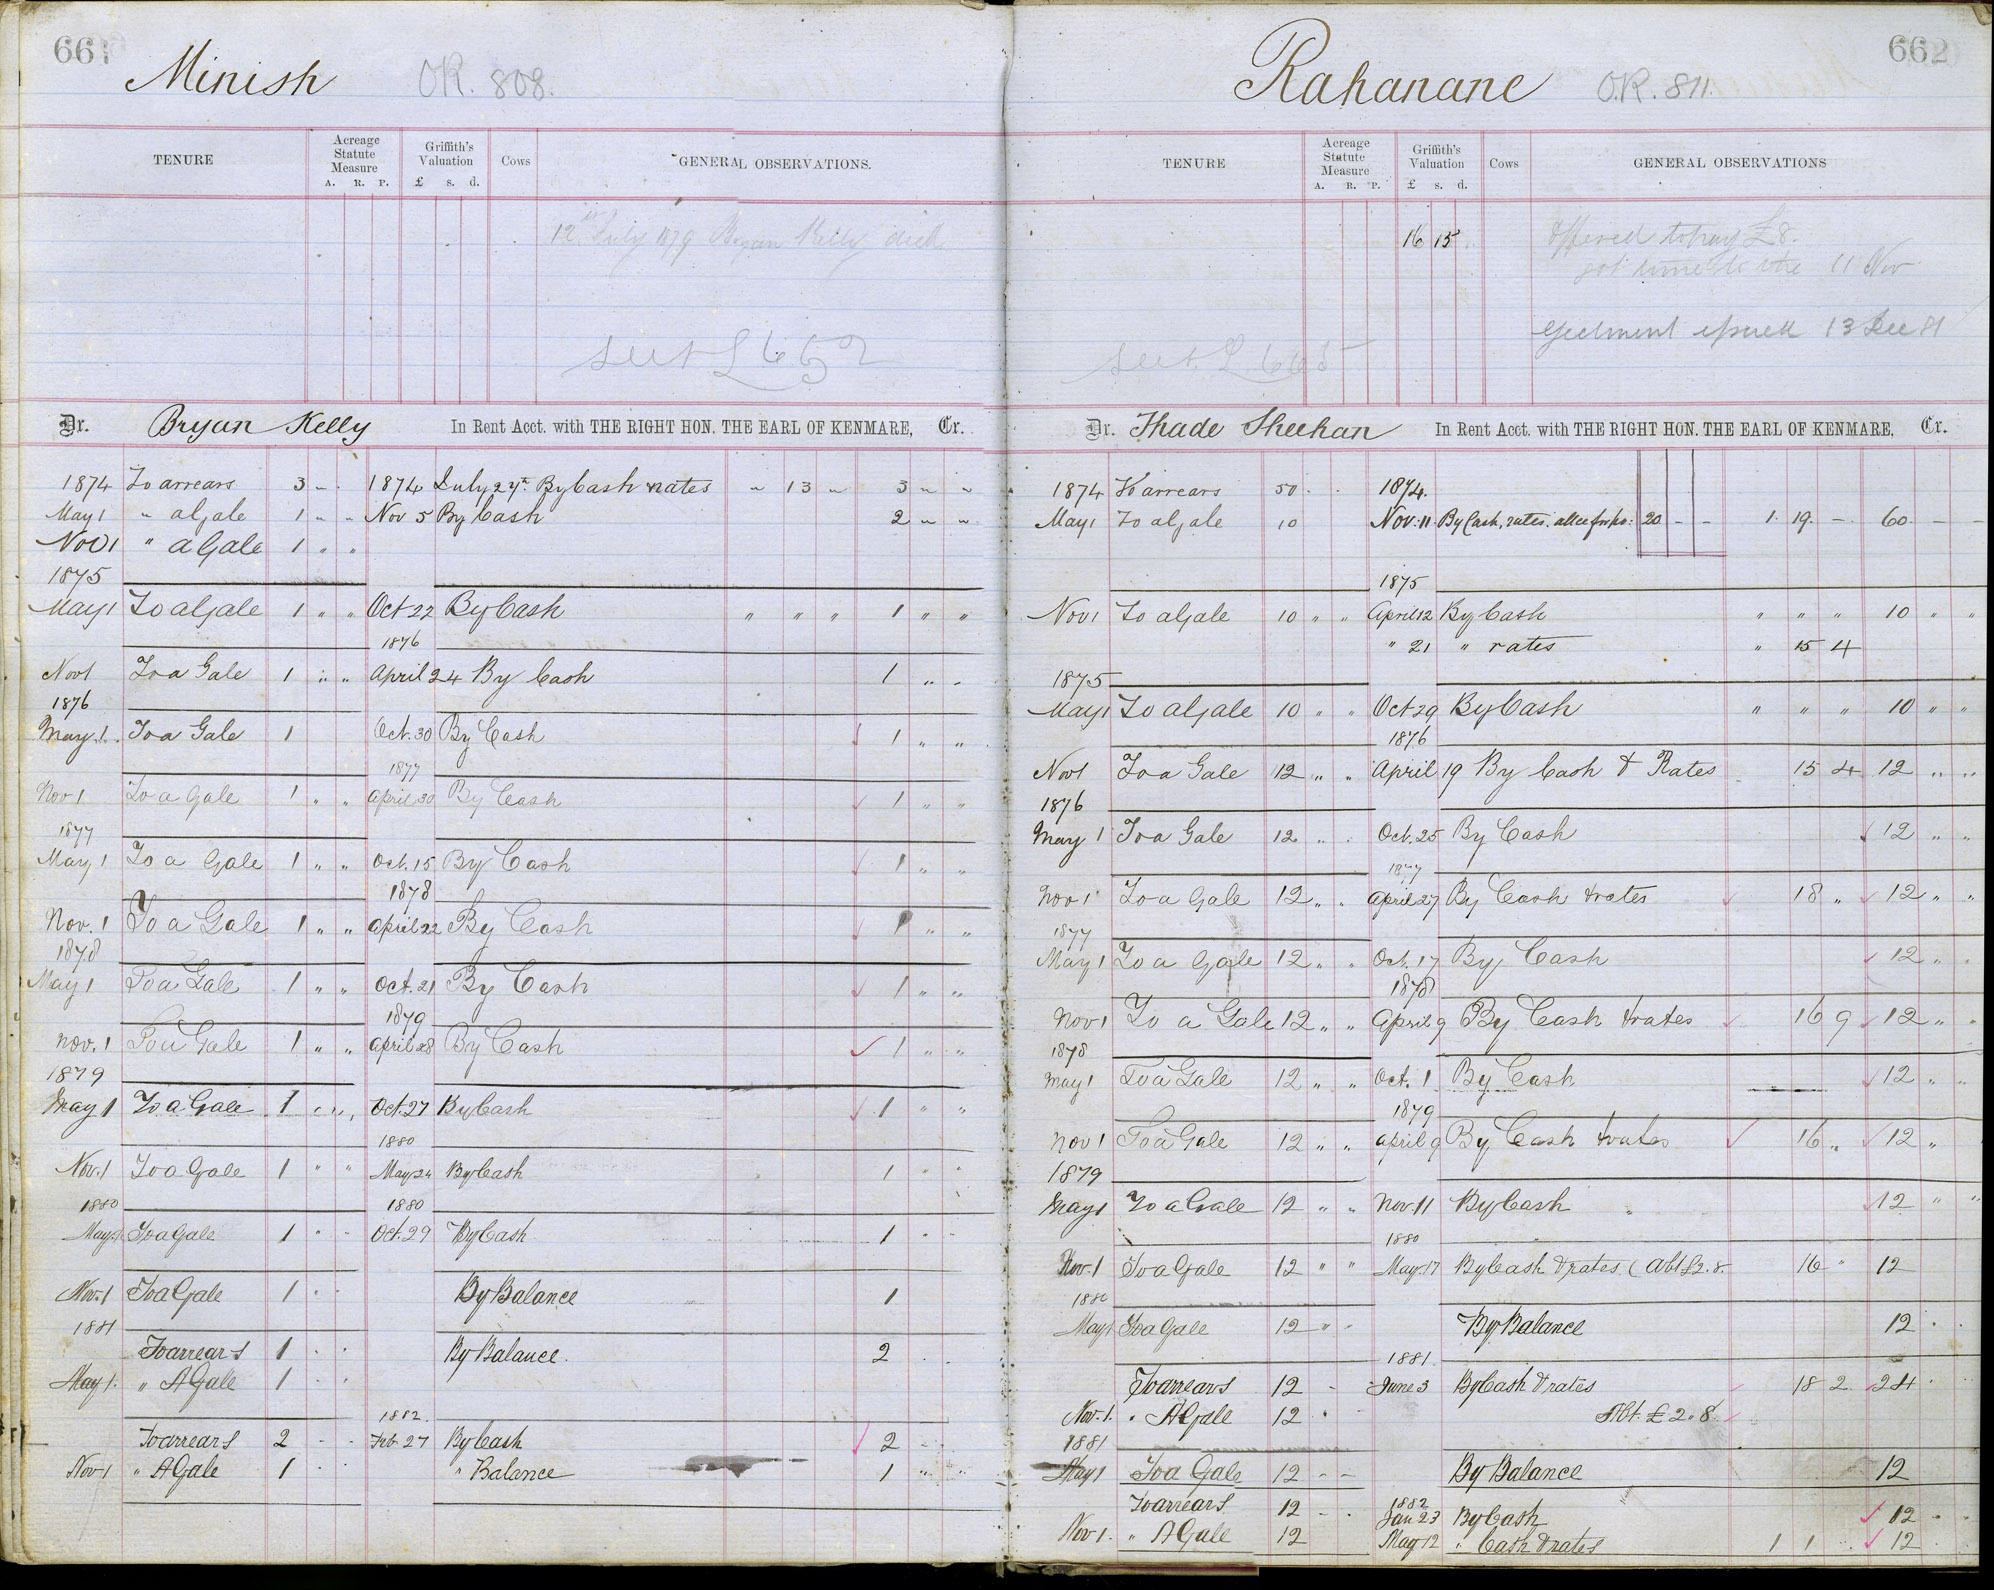 661
Minish OR. 808.
TENURE
Acreage Statute Measure
A. R. P.
Griffith's Valuation
£ s. d.
Cows
GENERAL OBSERVATIONS.
12th July 1879 Bryan Kelly died
see L 652
Dr. Bryan Kelly In Rent Acct. with THE RIGHT HON. THE EARL OF KENMARE, Cr.
1874 To arrears 3 " . 1874 July 27th By Cash rates " 13 " 3 " "
May 1 " a Gale 1 " " Nov 5 By Cash 2 " "
Nov 1 " a Gale 1 " "
1875
May 1 To a Gale 1 " " Oct 22 By Cash " " " 1 " "
1876
Nov 1 To a Gale 1 " " April 24 By Cash 1 " "
1876
May 1. To a Gale 1 Oct. 30 By Cash 1 " "
1877
Nov 1 To a Gale 1 " " April 30 By Cash 1 " "
1877
May 1 To a Gale 1 " " Oct. 15 By Cash 1 " "
1878
Nov. 1 To a Gale 1 " " April 22 By Cash 1 " "
1878
May 1 To a Gale 1 " " Oct. 21 By Cash 1 " "
1879
Nov. 1 To a Gale 1 " " April 28 By Cash 1 " "
1879
May 1 To a Gale 1 " " Oct. 27 By Cash 1 " "
1880
Nov. 1 To a Gale 1 " " May 24 By Cash 1 " "
1880 1880
May 1 To a Gale 1 " - Oct. 29 By Cash 1 " -
Nov. 1 To a Gale 1 . . By Balance 1
1881
To arrears 1 . . By Balance. 2 . .
May 1. " A Gale 1 . .
1882.
To arrears 2 - - Feb 27 By Cash 2 - -
Nov 1 " A Gale 1 . " Balance 1 " "
662
Rahanane O.R. 811.
TENURE
Acreage Statute Measure
A. R. P.
Griffith's Valuation
£ s. d.
Cows
GENERAL OBSERVATIONS
16 15 Offered to pay £8.
got time to the 11 Nov
Ejectment issued 13 Dec 81
see L. 665
Dr. Thade Sheehan In Rent Acct. with THE RIGHT HON. THE EARL OF KENMARE, Cr.
1874 To arrears 50 . . 1874.
May 1 To a Gale 10 Nov. 11 By Cash, rates. allce for ho: 20 - - 1. 19. - 60 - -
1875
Nov 1 To a Gale 10 " " April 12 By Cash " " " 10 " "
" 21 " rates " 15 4
1875
May 1 To a Gale 10 " " Oct 29 By Cash " " " 10 " "
1876
Nov 1 To a Gale 12 " " April 19 By Cash & Rates 15 4 12 " "
1876
May 1 To a Gale 12 " . Oct. 25 By Cash 12 " "
1877
Nov 1 To a Gale 12 " . April 27 By Cash & rates 18 " 12 " "
1877
May 1 To a Gale 12 " . Oct. 17 By Cash 12 " .
1878
Nov 1 To a Gale 12 " " April 9 By Cash & rates 16 9 12 " "
1878
May 1 To a Gale 12 " " Oct. 1 By Cash 12 " "
1879
Nov 1 To a Gale 12 " " April 9 By Cash & rates 16 " 12 "
1879
May 1 To a Gale 12 " " Nov. 11 By Cash 12 " "
1880
Nov. 1 To a Gale 12 " " May 17 By Cash & rates (Abt £2.8. 16 " 12
1880
May 1 To a Gale 12 " - By Balance 12 . .
1881.
To arrears 12 - June 3 By Cash & rates 18 2 24 .
Nov. 1. " A Gale 12 . Abt. £2.8.
1881
May 1 To a Gale 12 - - By Balance 12
To arrears 12 - . 1882 Jan 23 By Cash 12 - .
Nov 1. " A Gale 12 May 12 " Cash & rates 1 1 12